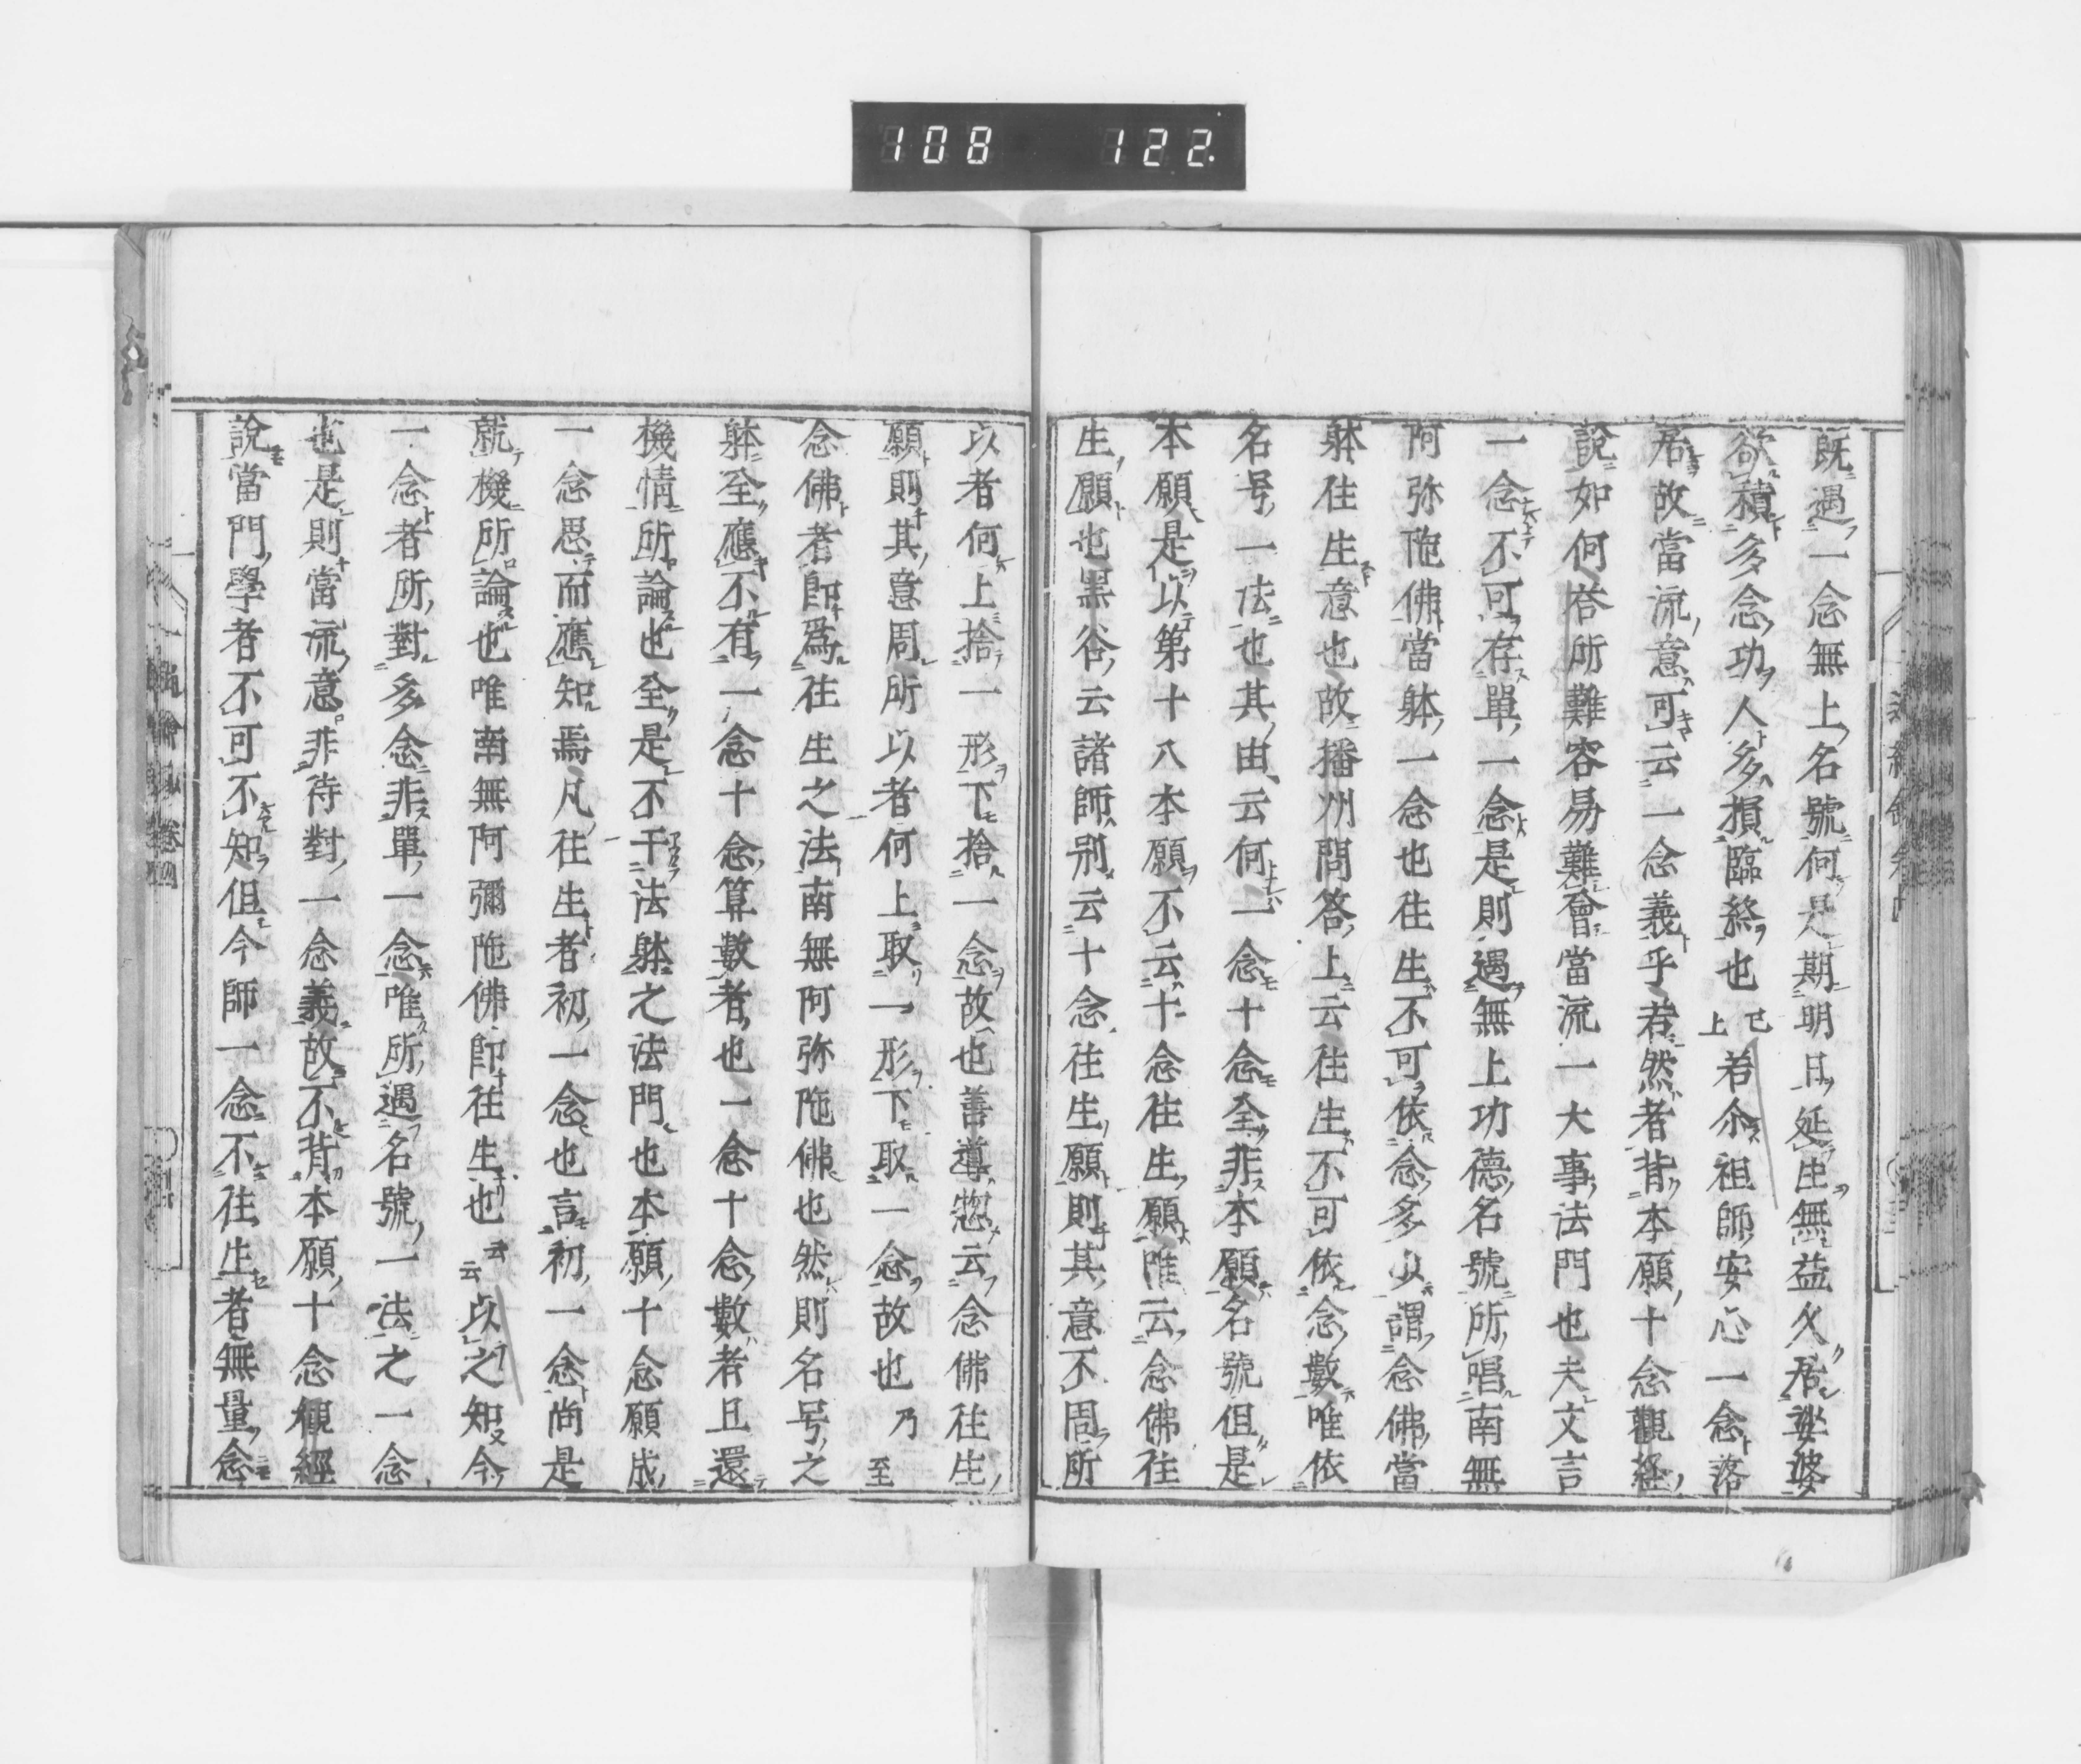 108 122
既遇一念無上名號何是期明日延生無益久居娑婆
欲積多念功人多損臨終也已上若尒祖師安心一念落
居故當流意可云一念義乎若然者背本願十念觀経
說如何答所難容易難會當流一大事法門也夫文言
一念不可存單一念是則遇無上功德名號所唱南無
阿弥陁佛當躰一念也往生不可依念多少謂念佛當
躰往生意也故播州問答上云往生不可依念數唯依
名号一法也其由云何一念十念全非本願名號但是
本願是以第十八本願不云十念往生願唯云念佛往
生願也黒谷云諸師別云十念往生願則其意不周所
以者何上捨一形下捨一念故也善導惣云念佛往生
願則其意周所以者何上取一形下取一念故也乃至
念佛者卽爲往生之法南無阿弥陁佛也然則名号之
躰全應不有一念十念算數者也一念十念數者且還
機情所論也全是不干法躰之法門也本願十念願成
一念思而應知焉凡往生者初一念也言初一念尚是
就機所論也唯南無阿彌陁佛卽往生也云云以之知今
一念者所對多念非單一念唯所遇名號一法之一念
也是則當流意非待對一念義故不背本願十念觀經
說當門學者不可不知但今師一念不往生者無量念